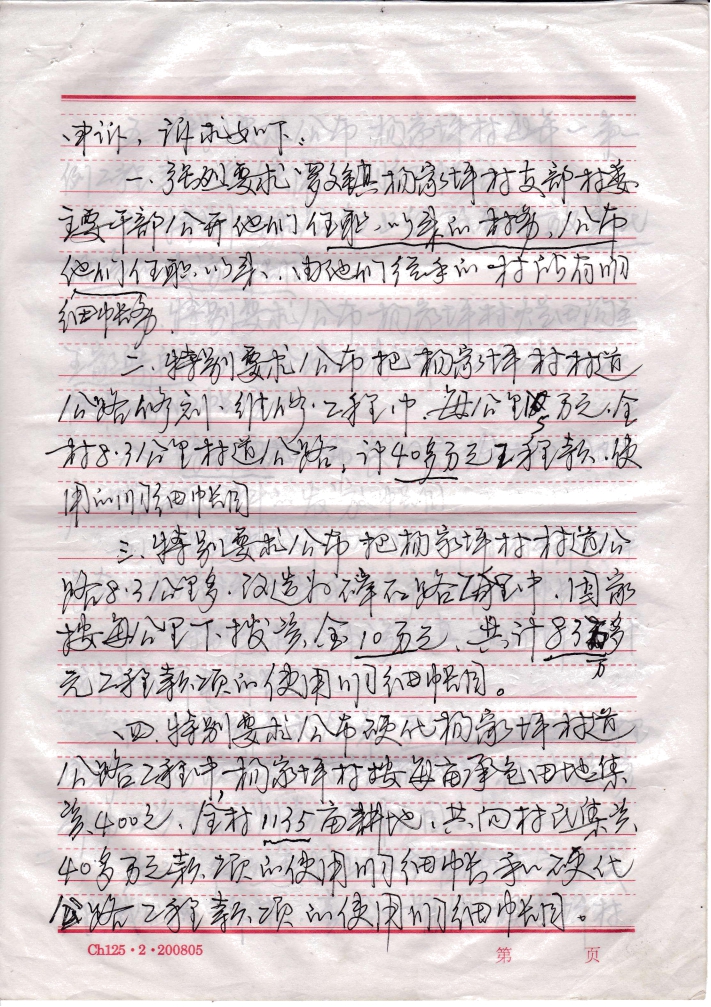 申诉，诉求如下：
一、强烈要求罗镇杨家坪村支部村委
主要干部公开他们任职以来的村务，公布
他们任职以来、由他们经手的村所有明
细帐务，
二、特别要求公布把杨家坪村村道
公路修剏、维修工程中，每公里5万元，全
村8.31公里村道公路，计40多万元工程款使
用的明细帐目
三、特别要求公布把杨家坪村村道公
路8.31公里多，改造为碎石路工程中，国家
按每公里下拨资金10万元，共计83多
万
元工程款项的使用明细帐目。
四、特别要求公布硬化杨家坪村道
公路工程中，杨家坪村按每亩承包田地集
资400元，全村1135亩耕地，共向村民集资
40多万元款项的使用明细帐和硬化
公路工程款项的使用明细帐目。
Ch125·2·200805
第 页